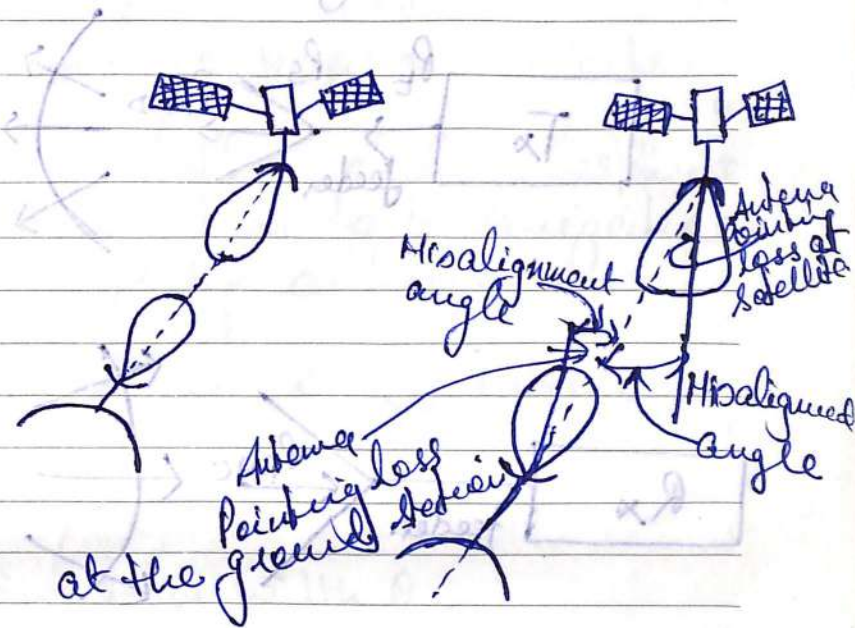 Misalignment
angle
Antenna
pointing
loss at
satellite
Misalignment
angle
Antenna
Pointing loss
at the ground station